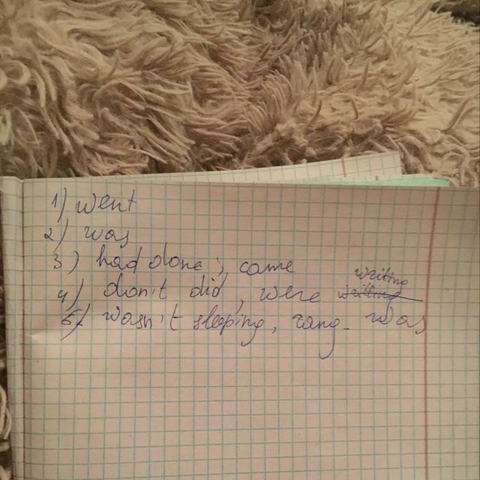 1) went
2) was
3) had done; came
4) don't did, were writing
5) wasn't sleeping, rang. was